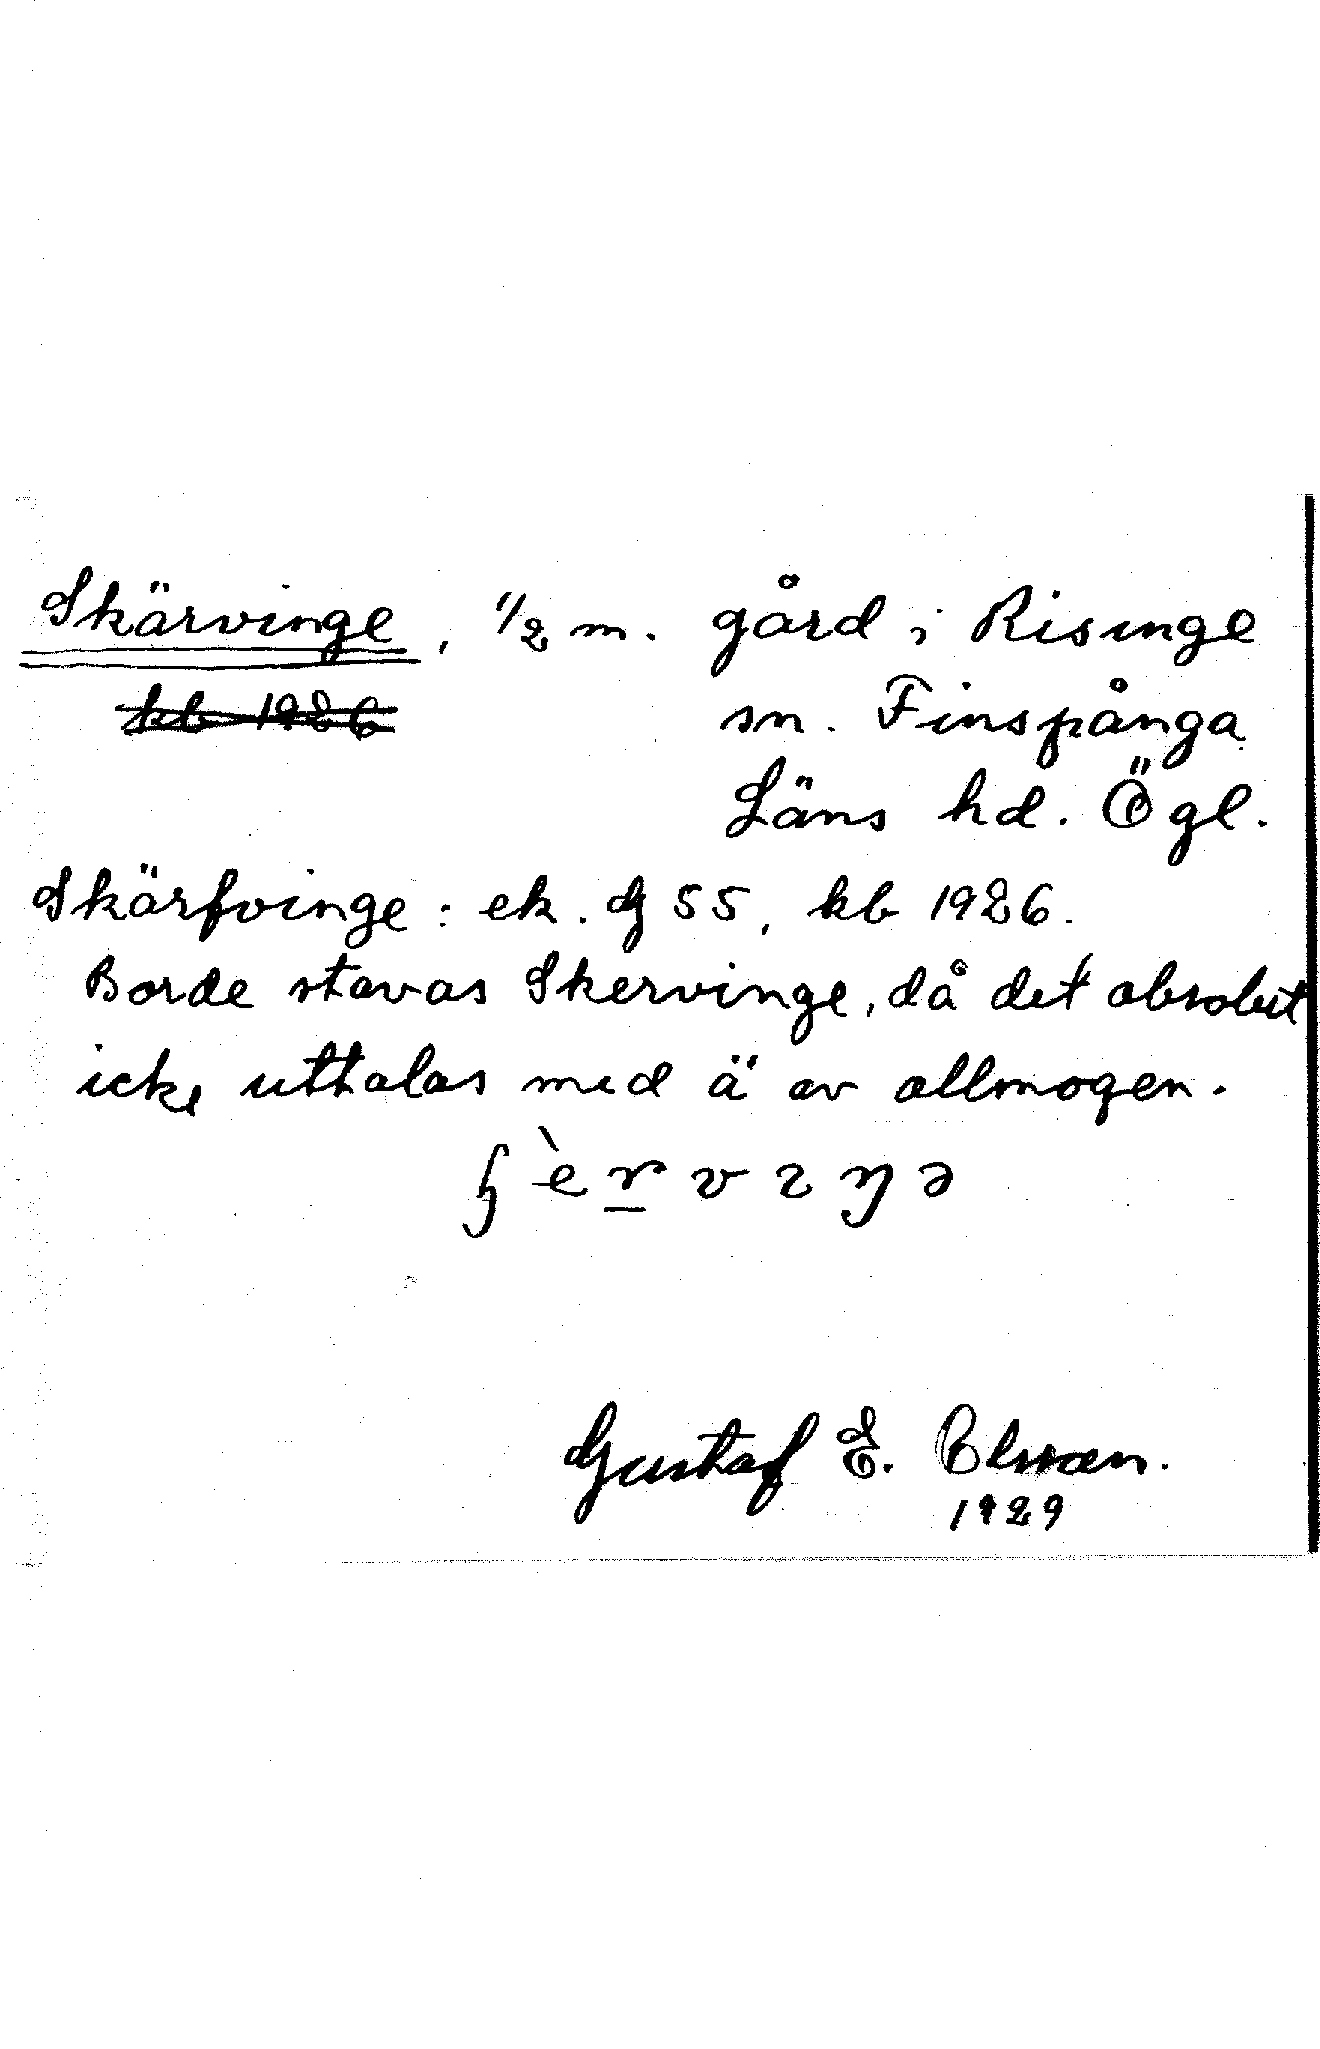 Skärvinge, 1/2 m. gård i Risinge
kb 1926 sn. Finspånga
Läns hd. Ögl.
Skärfvinge: ek. G 55, kb 1926.
Borde stavas Skervinge, då det absolut
icke uttalas med ä av allmogen.
Gustaf E.
1929